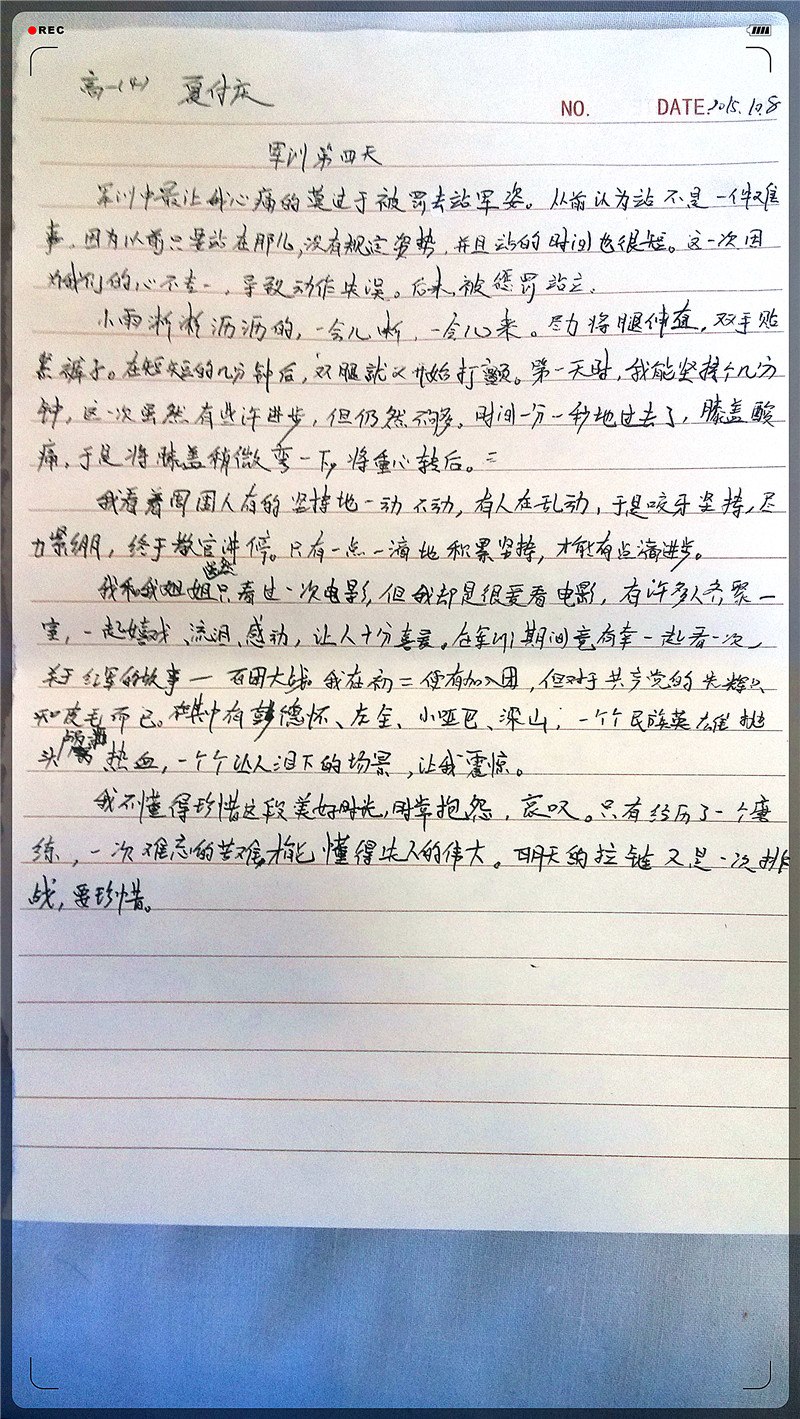 REC
高一(4) 夏付庆
NO. DATE. 2015.10.8
军训第四天
军训中最让我心痛的莫过于被罚去站军姿。从前认为站不是一件难
事，因为以前只是站在那儿，没有规定姿势，并且站的时间也很短。这一次因
为我们的心不专一，导致动作失误。后来，被惩罚站立。
小雨淅淅沥沥的，一会儿断，一会儿来。尽力将腿伸直，双手贴
紧裤子。在短短的几分钟后，双腿就又开始打颤。第一天时，我能坚持个几分
钟，这一次虽然有些许进步，但仍然不够。时间一分一秒地过去了，膝盖酸
痛，于是将膝盖稍微弯一下，将重心转后。
我看着周围人有的坚持地一动不动，有人在乱动，于是咬牙坚持，尽
力紧绷，终于教官讲停。只有一点一滴地积累坚持，才能有点滴进步。
我和我姐姐只看过一次电影，但我却是很爱看电影，有许多人齐聚一
室，一起嬉戏、流泪、感动，让人十分喜爱。在军训期间竟有幸一起看一次
关于红军的故事—百团大战。我在初二便有加入团，但对于共产党的光辉只
知皮毛而已。在其中有彭德怀、左全、小哑巴、深山，一个个民族英雄抛
头 热血，一个个让人泪下的场景，让我震惊。
我不懂得珍惜这段美好时光，时常抱怨，哀叹。只有经历了一个磨
练，一次难忘的苦难，才能懂得 人的伟大。明天的拉 又是一次挑
战，要珍惜。